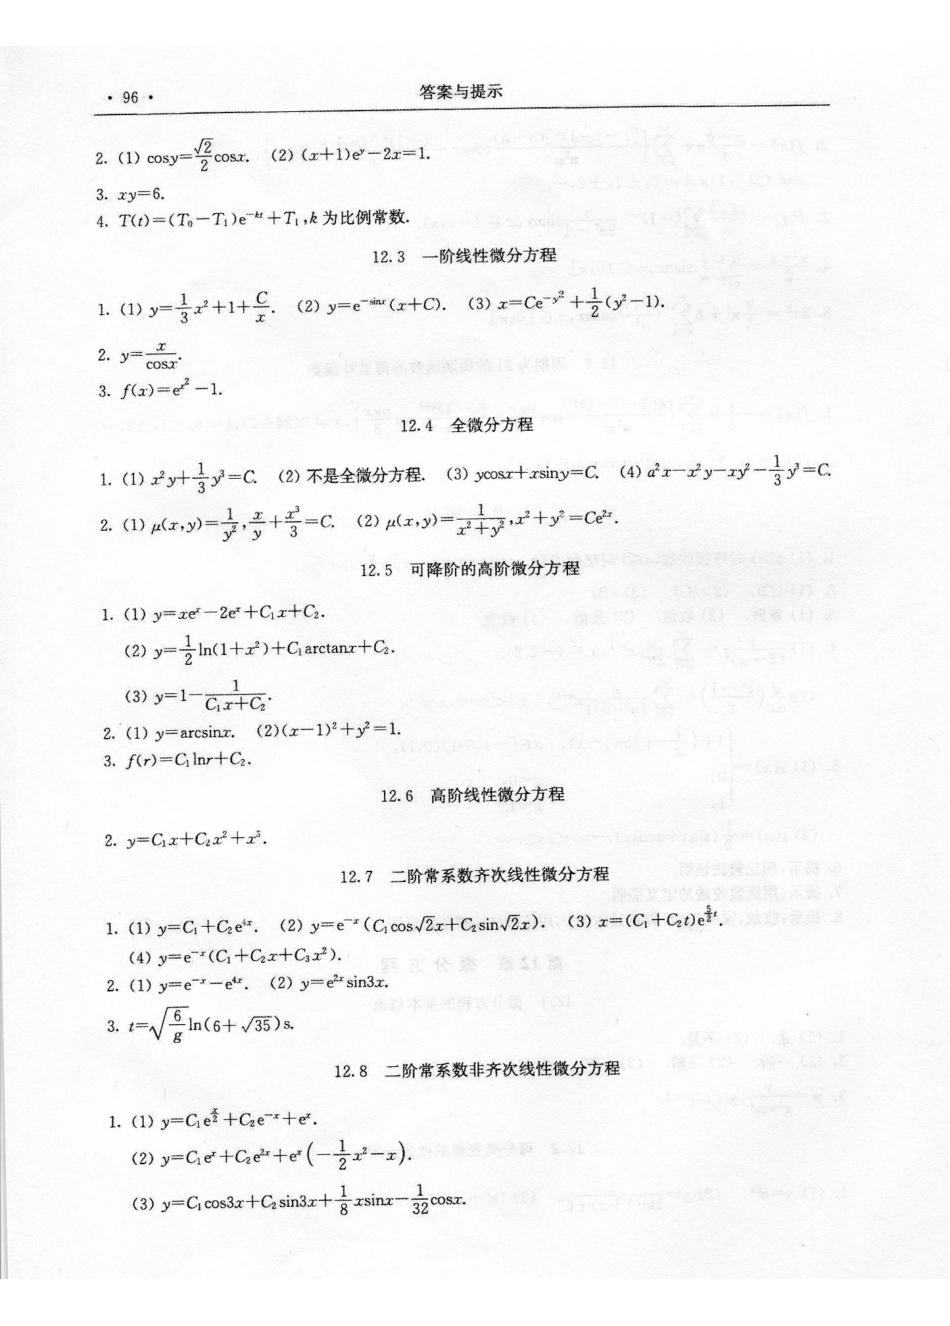 · 96 ·
答案与提示
2. (1) cosy=√2/2 cosx. (2) (x+1)e^y−2x=1.
3. xy=6.
4. T(t)=(T₀−T₁)e^{−kt}+T₁,k 为比例常数.
12.3 一阶线性微分方程
1. (1) y=1/3 x²+1+C/x. (2) y=e^{−sinx}(x+C). (3) x=Ce^{−y²}+1/2(y²−1).
2. y=x/cosx.
3. f(x)=e^{x²}−1.
12.4 全微分方程
1. (1) x²y+1/3 y³=C. (2) 不是全微分方程. (3) ycosx+xsiny=C. (4) a²x−x²y−xy²−1/3 y³=C.
2. (1) μ(x,y)=1/y²,x/y+x³/3=C. (2) μ(x,y)=1/(x²+y²),x²+y²=Ce^{2x}.
12.5 可降阶的高阶微分方程
1. (1) y=xe^x−2e^x+C₁x+C₂.
(2) y=1/2 ln(1+x²)+C₁arctanx+C₂.
(3) y=1−1/(C₁x+C₂).
2. (1) y=arcsinx. (2)(x−1)²+y²=1.
3. f(r)=C₁lnr+C₂.
12.6 高阶线性微分方程
2. y=C₁x+C₂x²+x³.
12.7 二阶常系数齐次线性微分方程
1. (1) y=C₁+C₂e^{4x}. (2) y=e^{−x}(C₁cos√2x+C₂sin√2x). (3) x=(C₁+C₂t)e^{5/2 t}.
(4) y=e^{−x}(C₁+C₂x+C₃x²).
2. (1) y=e^{−x}−e^{4x}. (2) y=e^{2x}sin3x.
3. t=√(6/g) ln(6+√35)s.
12.8 二阶常系数非齐次线性微分方程
1. (1) y=C₁e^{x/2}+C₂e^{−x}+e^x.
(2) y=C₁e^x+C₂e^{2x}+e^x(−1/2 x²−x).
(3) y=C₁cos3x+C₂sin3x+1/8 xsinx−1/32 cosx.